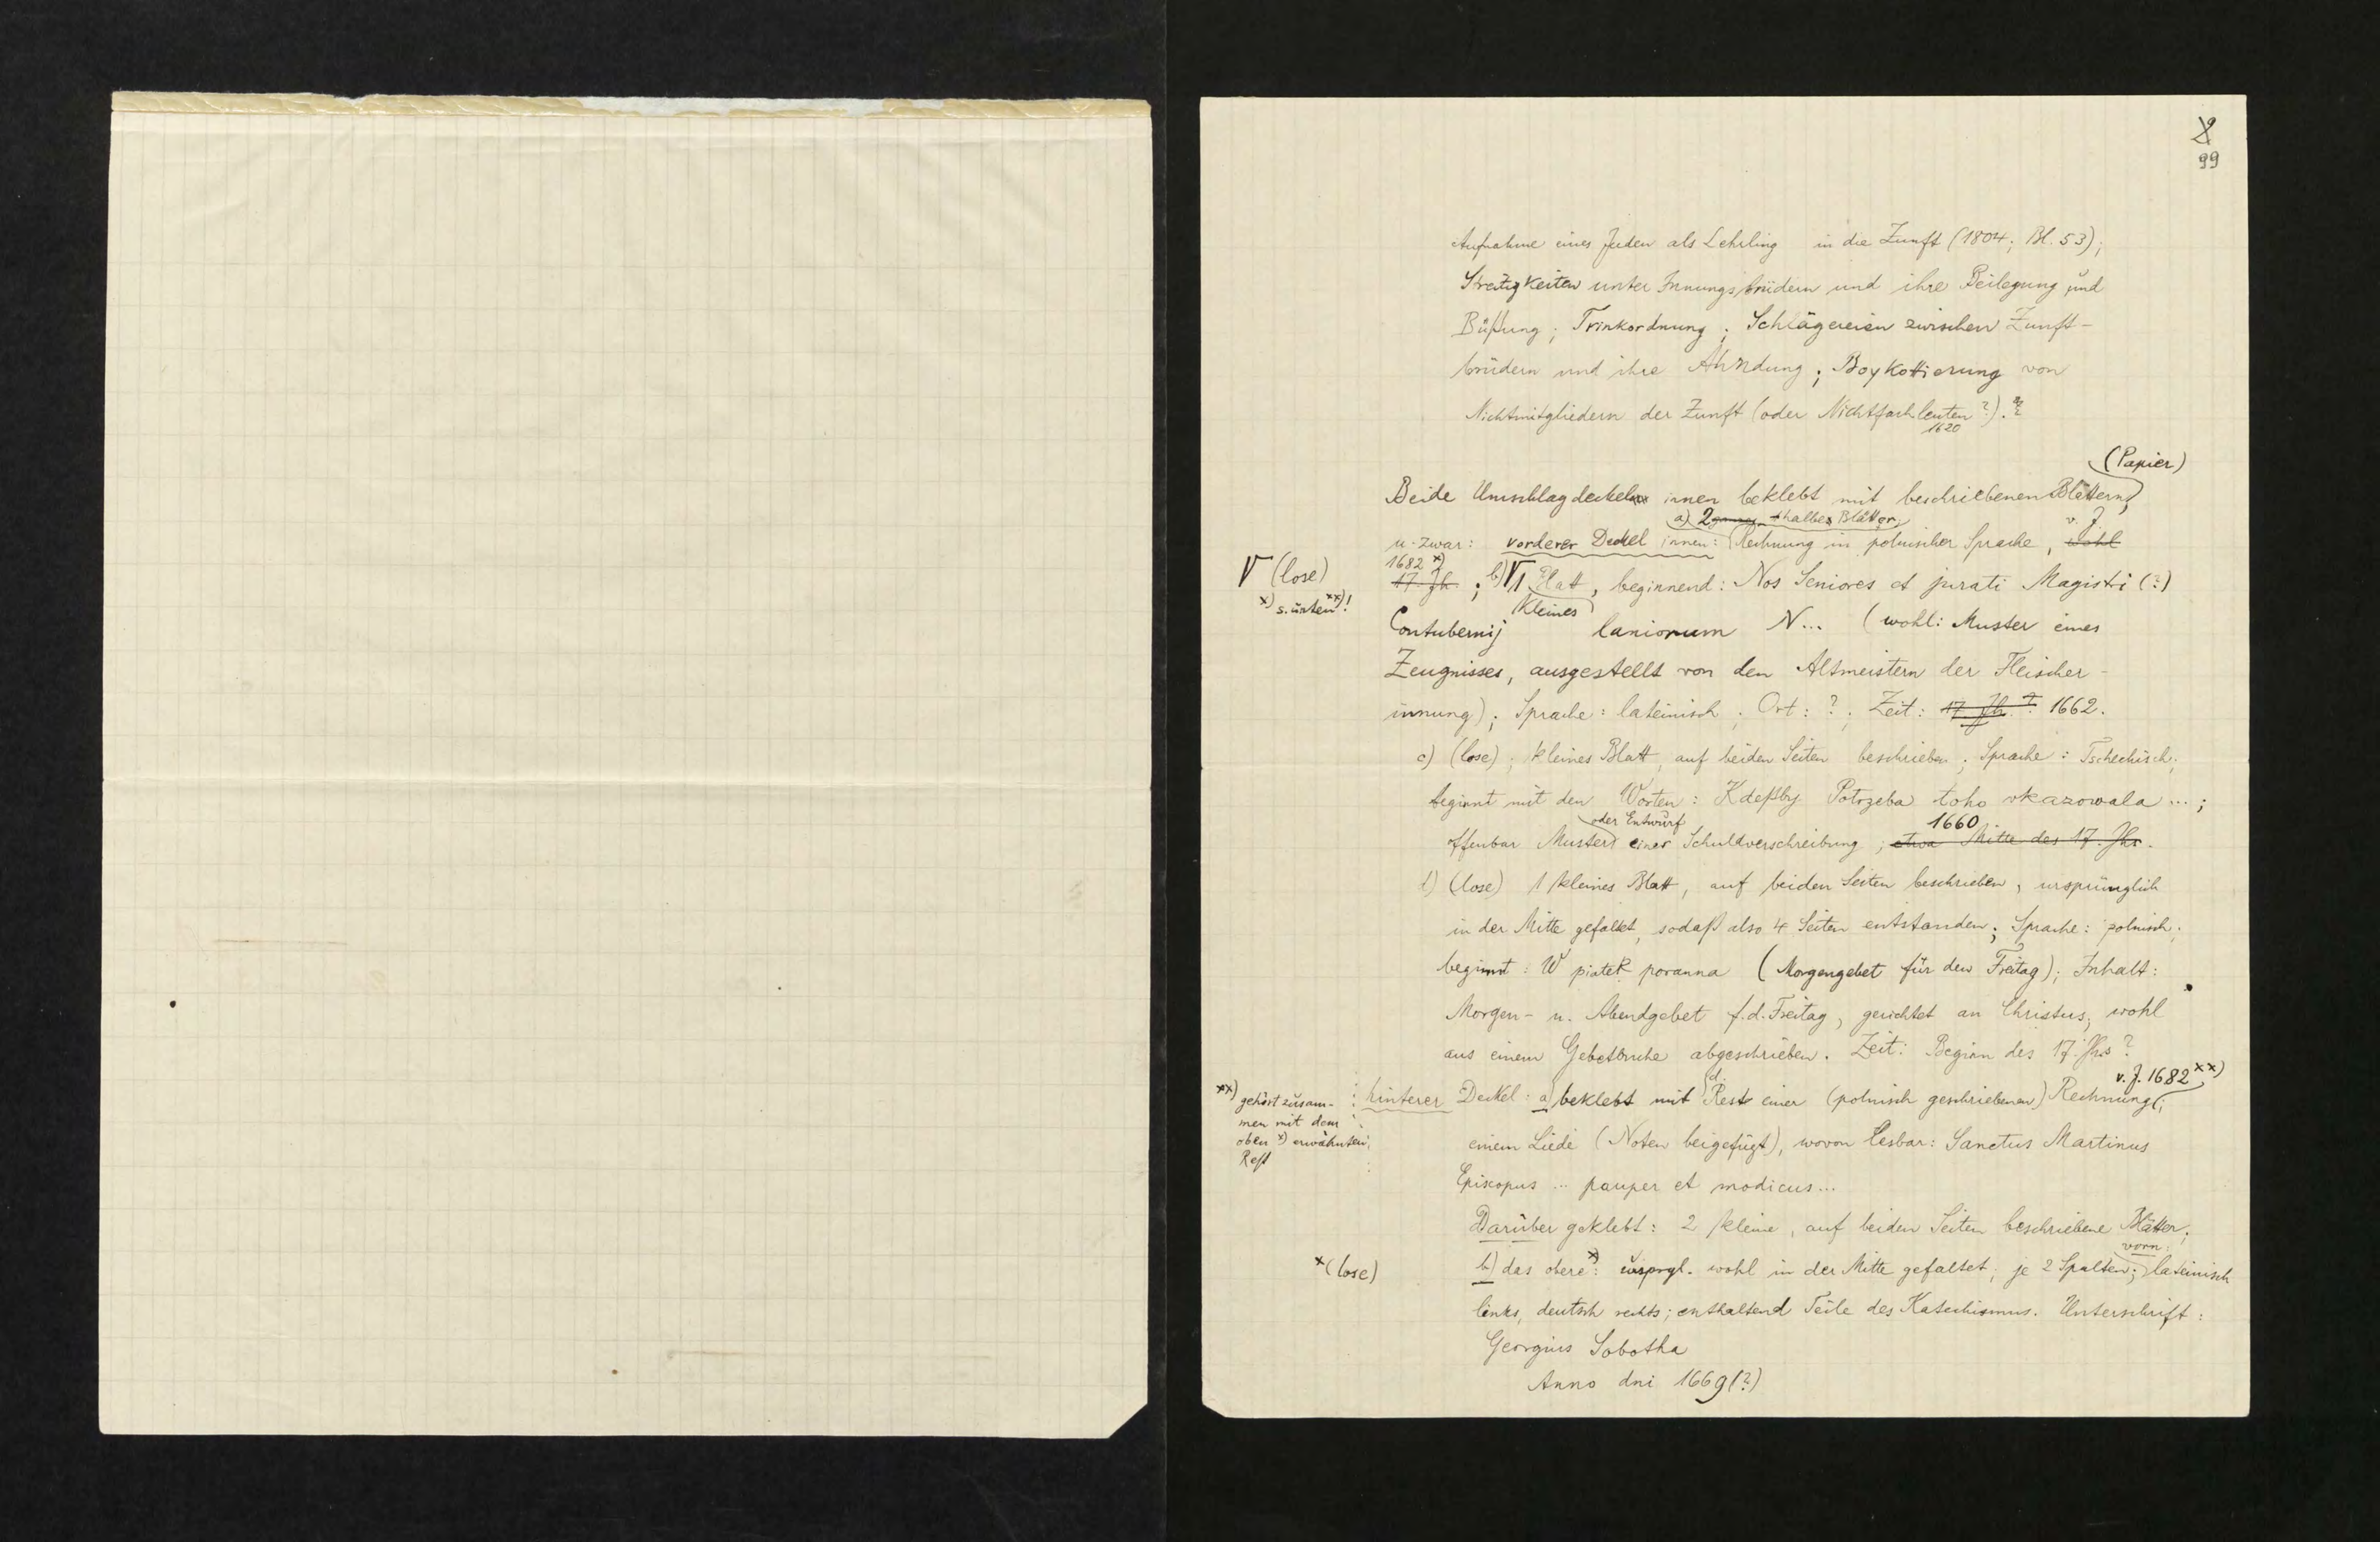 99
Aufnahme eines Juden als Lehrling in die Zunft (1804; Bl. 53);
Streitigkeiten unter Innungsbrüdern und ihre Beilegung und
Büßung; Trinkordnung; Schlägereien zwischen Zunft-
brüdern und ihre Ahndung; Boykottierung von
Nichtmitgliedern der Zunft (oder Nichtfachleuten?).
1620
(Papier)
Beide Umschlagdeckel innen beklebt mit beschriebenen Blättern,
a) 2 halbe Blätter v. J.
u. zwar: vorderer Deckel innen: Rechnung in polnischer Sprache, wohl
1682 x)
17. Jh.; b) 1 Blatt, beginnend: Nos Seniores et jurati Magistri (?)
(lose)
x) s. unten xx)!
kleines
Contubernij laniorum N... (wohl: Muster eines
Zeugnisses, ausgestellt von den Altmeistern der Fleischer-
innung); Sprache: lateinisch; Ort: ?; Zeit: 17. Jh.? 1662.
c) (lose); kleines Blatt, auf beiden Seiten beschrieben; Sprache: Tschechisch;
beginnt mit den Worten: Kdeßby Potrzeba toho vkazowala ...;
oder Entwurf 1660
offenbar Muster einer Schuldverschreibung; etwa Mitte des 17. Jhs.
d) (lose) 1 kleines Blatt, auf beiden Seiten beschrieben, ursprünglich
in der Mitte gefaltet, sodaß also 4 Seiten entstanden; Sprache: polnisch;
beginnt: W piatek poranna (Morgengebet für den Freitag); Inhalt:
Morgen- u. Abendgebet f. d. Freitag, gerichtet an Christus, wohl
aus einem Gebetbuche abgeschrieben. Zeit: Beginn des 17. Jhs?
v. J. 1682 xx)
hinterer Deckel: a) beklebt mit d. Rest einer (polnisch geschriebenen) Rechnung;
xx) gehört zusam-
men mit dem
oben x) erwähnten
Rest
einem Liede (Noten beigefügt), wovon lesbar: Sanctus Martinus
Episcopus ... pauper et modicus...
Darüber geklebt: 2 kleine, auf beiden Seiten beschriebene Blätter;
vorn:
b) das obere x): urspgl. wohl in der Mitte gefaltet; je 2 Spalten; lateinisch
x (lose)
links, deutsch rechts; enthaltend Teile des Katechismus. Unterschrift:
Georgius Sobotka
Anno dni 1669 (?)